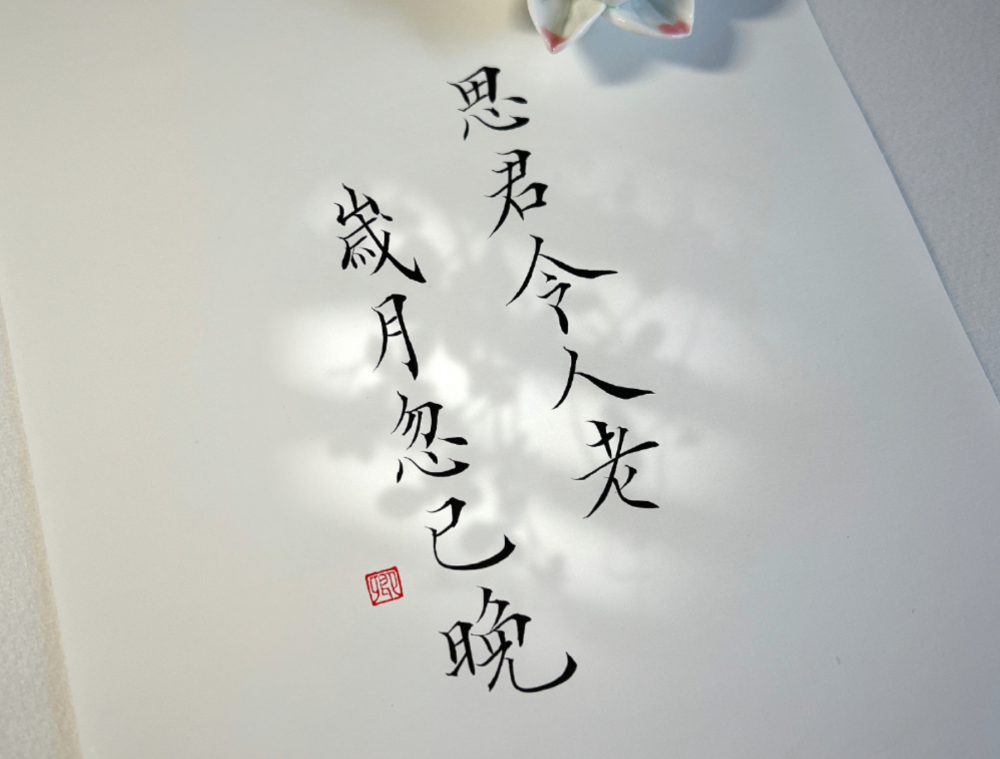 思君令人老
歲月忽已晚